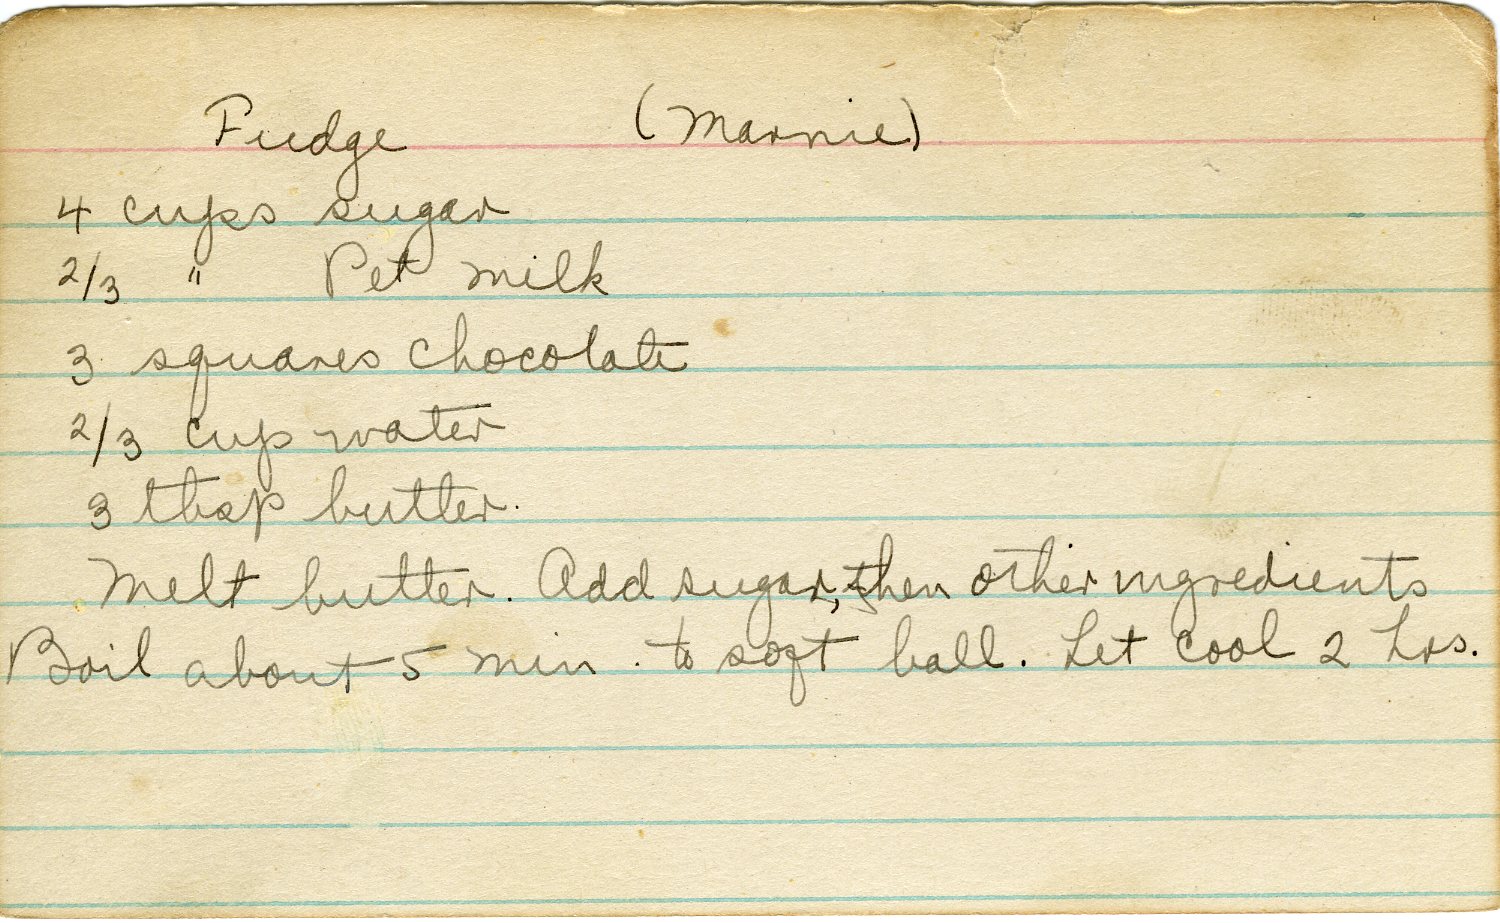 Fudge (Marnie)
4 cups sugar
2/3 " Pet milk
3 squares chocolate
2/3 cup water
3 tbsp butter.
Melt butter. Add sugar, then other ingredients
Boil about 5 min. to soft ball. Let cool 2 hrs.